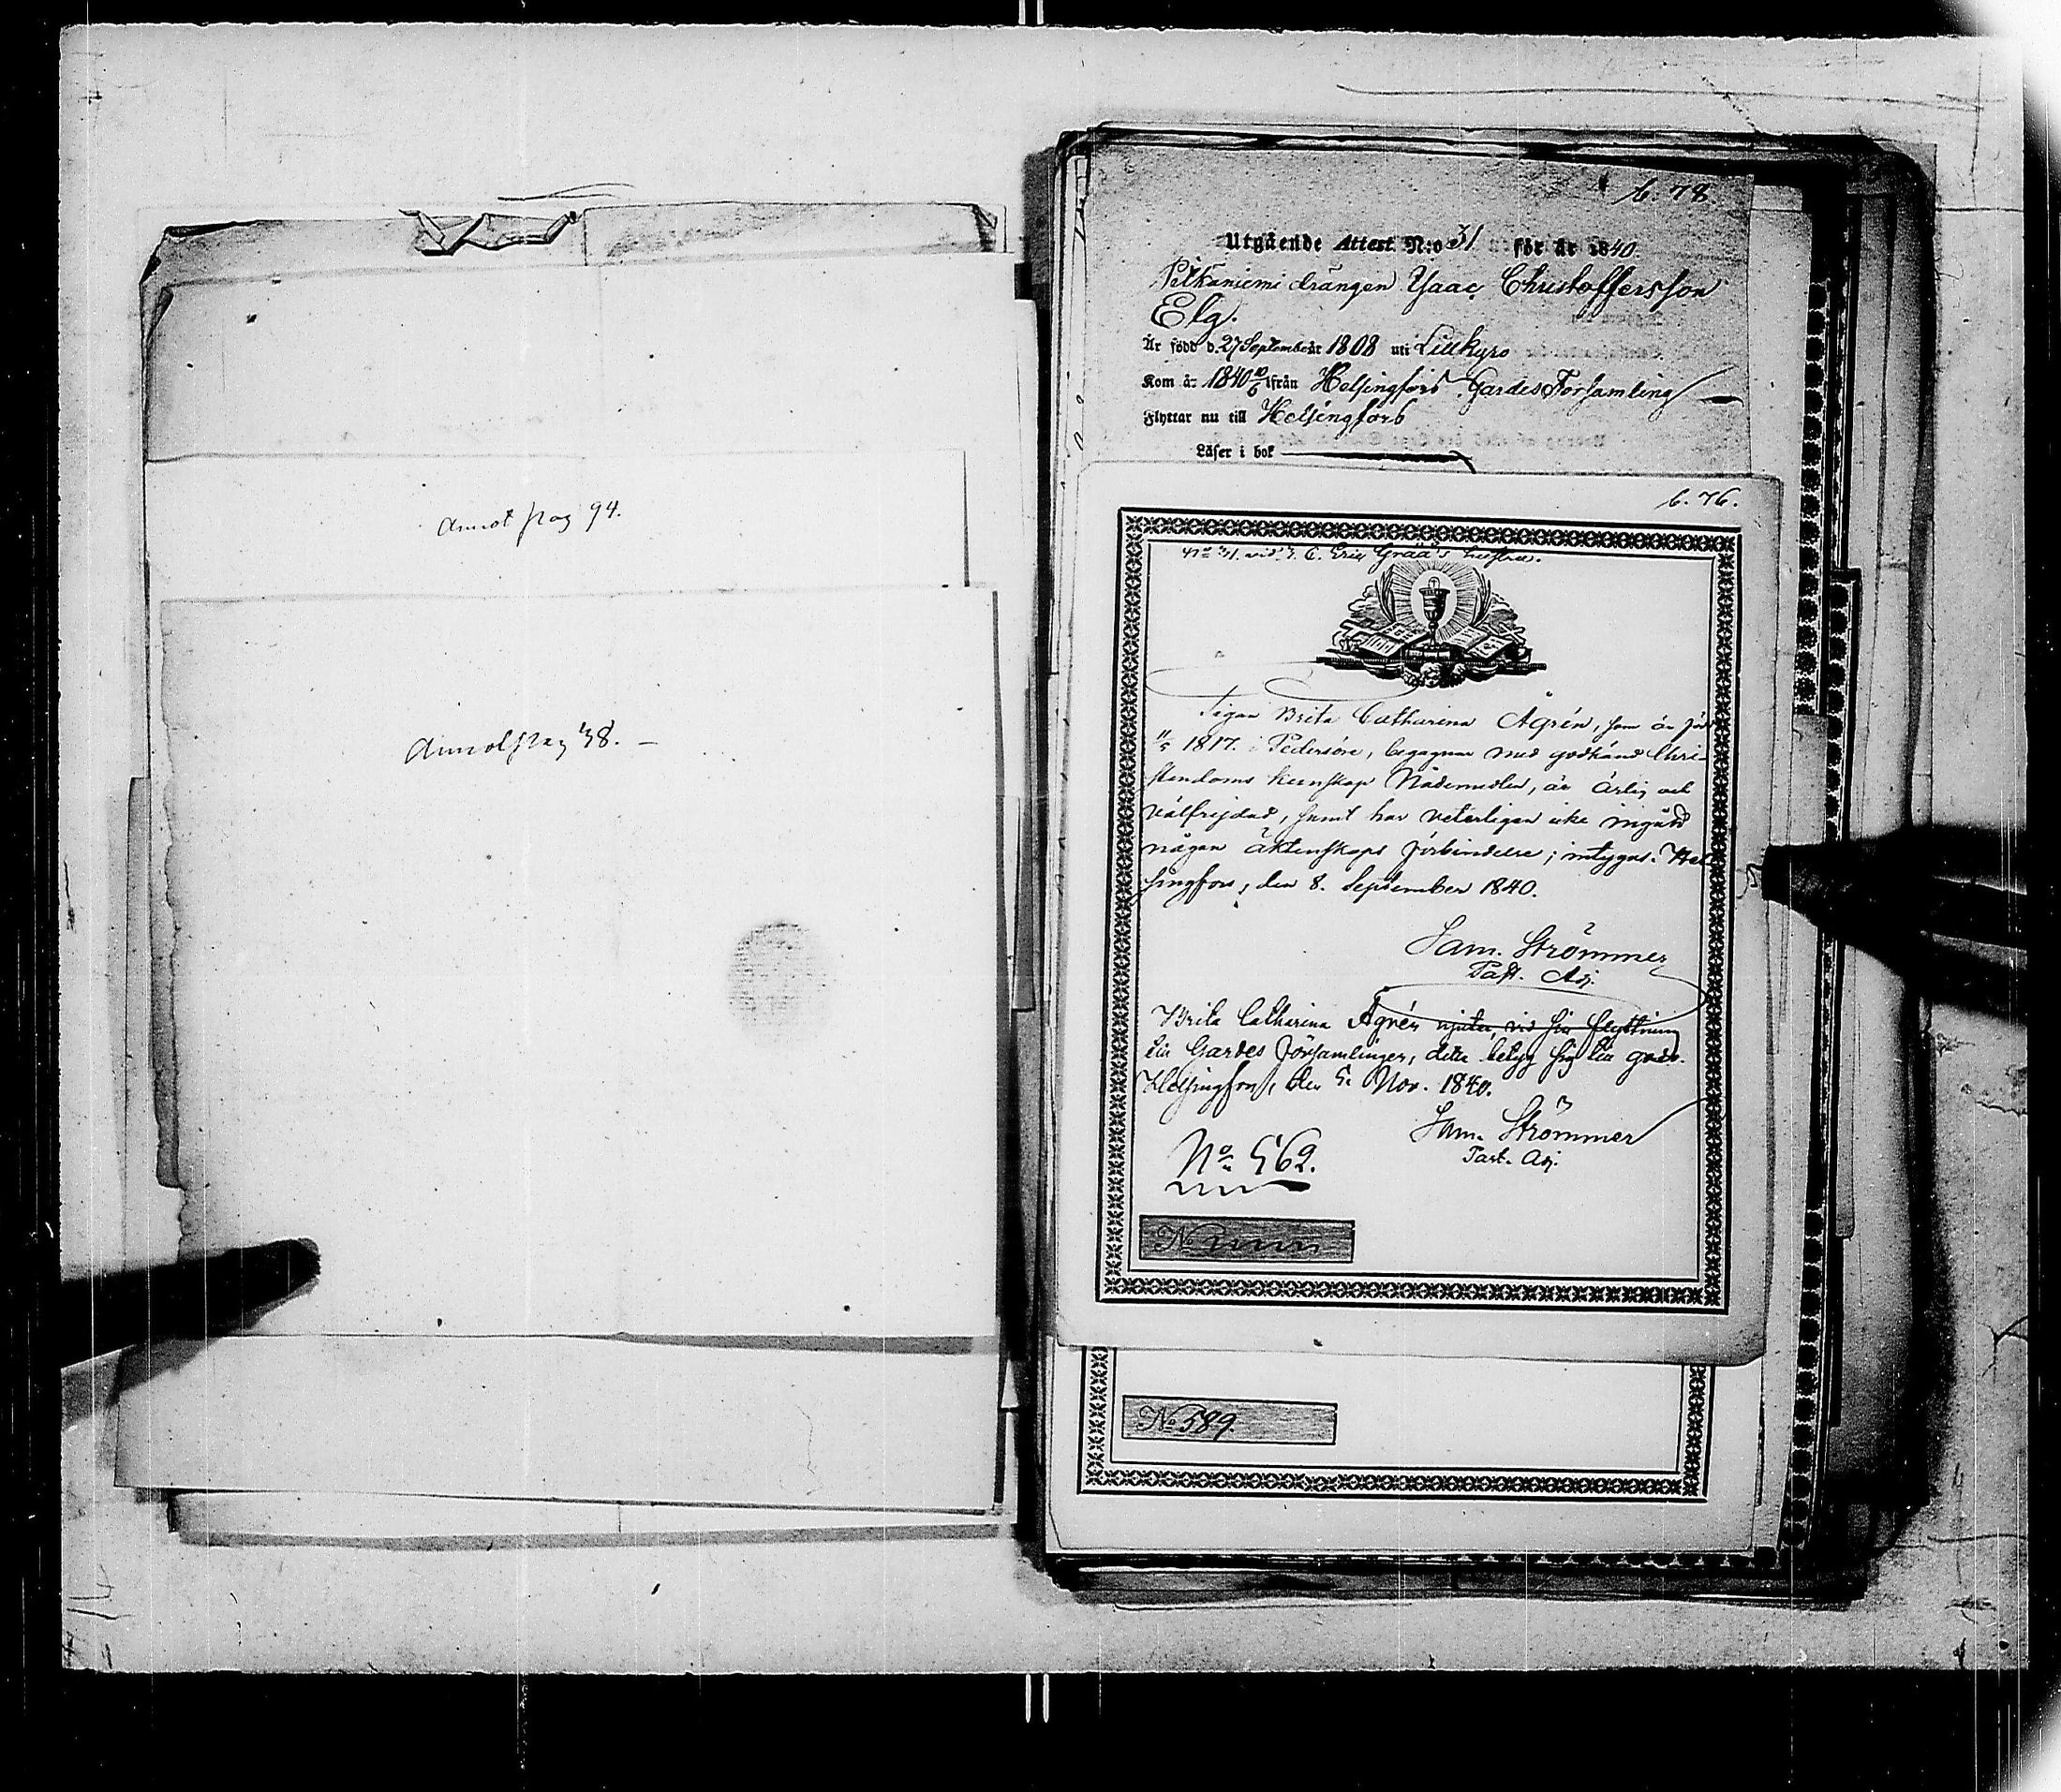 Annot pag 94.
Annot pag 38. –
b. 78.
Utgående Attest N:o 31 för år 1840.
drängen Isaac Christoffersson
Elg.
Är född d. 27 September år 1808 uti Lillkyro
Kom år 1840 10/6 ifrån Helsingfors Gardes Församling
Flyttar nu till Helsingfors
Läser i bok
b. 76.
No 31. vid 3. C. Eric Gråå's hustru.
Pigan Brita Catharina Ågrén, som är född
11/5 1817. i Pedersöre, begagnar med godkänd Chri-
stendoms kunskap Nådemedlen, är ärlig och
välfrejdad, samt har veterligen icke ingått
någon äktenskaps förbindelse; intygas. Hel-
singfors, den 8. September 1840.
Sam. Strömmer
Past. Adj.
Brita Catharina Ågrén njuter, vid sin flyttning
till Gardes församlingen, detta betyg sig till godo.
Helsingfors, den 5. Nov. 1840.
Sam. Strömmer
Past. Adj.
No 562.
No
No 589.